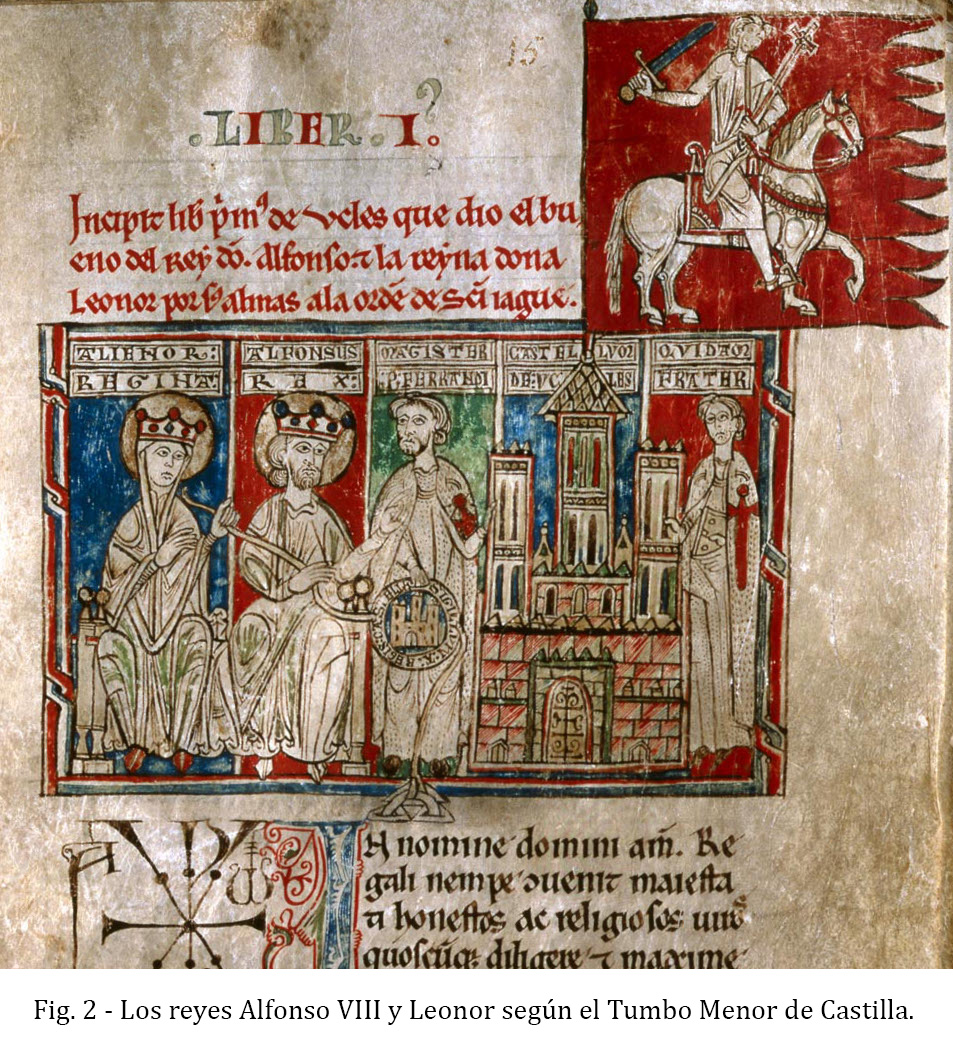 15
.LIBER.I.
Incipit lib̃ p̃m⁹ de vcles que dio el bu
eno del rey dõ. Alfonso ⁊ la reyna dona
Leonor por almas a la ordẽ de Sc̃i iague.
ALIENOR:
REGINA:
ALFONSUS
REX:
MAGISTER
.P. FERRANDI
CASTELLUM
DE
QVIDAM
FRATER
A ω
IN nomine domini am̃. Re
gali nempe ɔuenit maiesta
ti honestos ac religiosos
quoscũq; diligere ⁊ maxime
Fig. 2 - Los reyes Alfonso VIII y Leonor según el Tumbo Menor de Castilla.